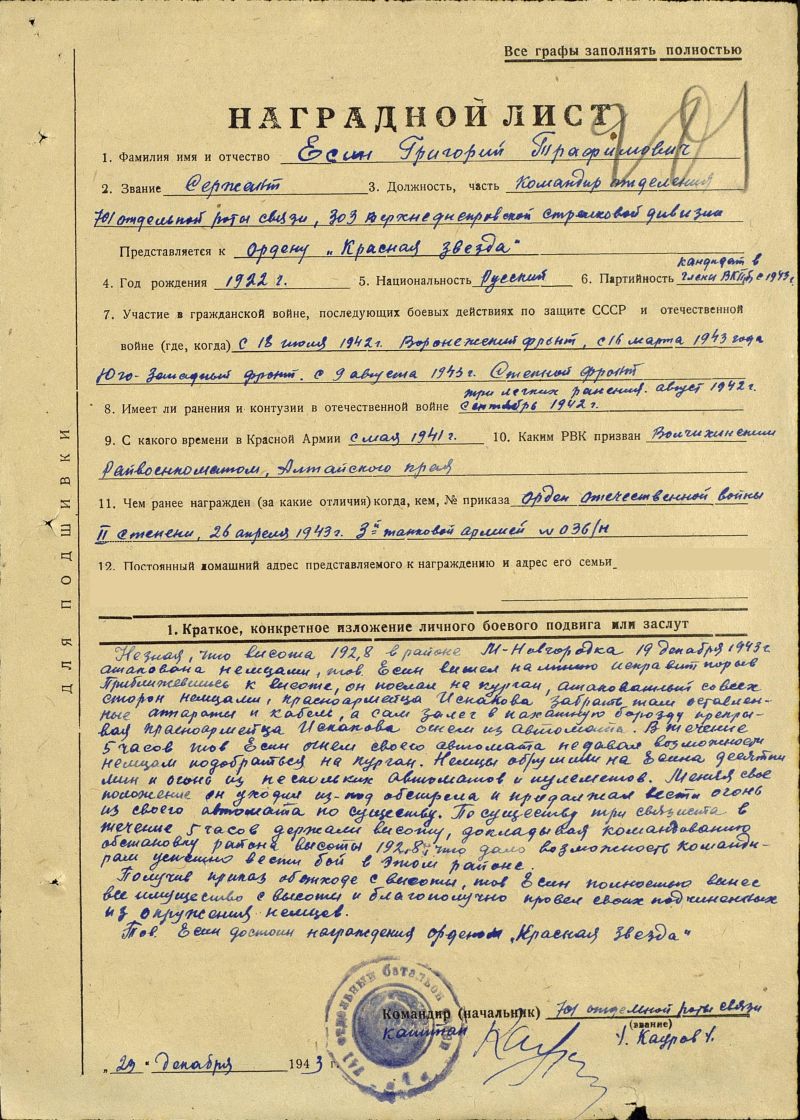 Все графы заполнять полностью
НАГРАДНОЙ ЛИСТ
1. Фамилия имя и отчество Есин Григорий Трафимович
2. Звание Сержант 3. Должность, часть Командир отделения
701 отдельной роты связи, 303 Верхнеднепровской стрелковой дивизии
Представляется к ордену „Красная звезда"
4. Год рождения 1922 г. 5. Национальность Русский 6. Партийность кандидат в
члены ВКП(б) с 1943 г.
7. Участие в гражданской войне, последующих боевых действиях по защите СССР и отечественной
войне (где, когда) с 18 июля 1942 г. Воронежский фронт, с 16 марта 1943 года
Юго-Западный фронт. с 9 августа 1943 г. Степной фронт
8. Имеет ли ранения и контузии в отечественной войне три легких ранения. август 1942 г.
сентябрь 1942 г.
9. С какого времени в Красной Армии с мая 1941 г. 10. Каким РВК призван Волчихинским
Райвоенкоматом, Алтайского края
11. Чем ранее награжден (за какие отличия) когда, кем, № приказа орден отечественной войны
II степени, 26 апреля 1943 г. 3й танковой армией № 036/н
12. Постоянный домашний адрес представляемого к награждению и адрес его семьи
1. Краткое, конкретное изложение личного боевого подвига или заслуг
Незная, что высота 192,8 в районе М-Новгородка 19 декабря 1943 г
атакована немцами, тов. Есин вышел на линию исправит порыв
Приближевшись к высоте, он послал на курган, атакованный со всех
сторон немцами, красноармейца Искакова забрать там оставлен-
ные аппараты и кабель, а сам залег в паханную борозду прикры-
вая красноармейца Искакова огнем из автомата. В течение
5 часов тов Есин огнем своего автомата недавал возможности
немцам подобраться на курган. Немцы обрушили на Есина десятки
мин и огонь из нескольких автоматов и пулеметов. Меняя свое
положение он уходил из-под обстрела и продолжал вести огонь
из своего автомата по существу. По существу три связиста в
течение 5 часов держали высоту, докладывая командованию
обстановку района высоты 192,8, что дало возможность команди-
рам успешно вести бой в этом районе.
Получив приказ об отходе с высоты, тов Есин полностью вынес
все имущество с высоты и благополучно провел своих подчиненных
из окружения немцев.
Тов. Есин достоин награждения орденом „Красная звезда"
Командир (начальник) 701 отдельной роты связи
(звание)
капитан /. Кауров /.
„29" декабря 1943 г.
отдельный батальон связи
ДЛЯ ПОДШИВКИ